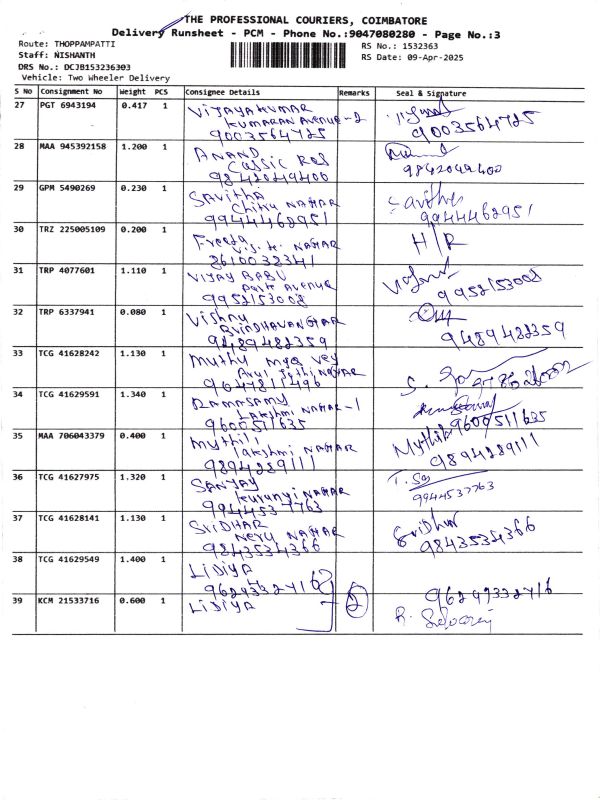 THE PROFESSIONAL COURIERS, COIMBATORE
Delivery Runsheet - PCM - Phone No.:9047080280 - Page No.:3
Route: THOPPAMPATTI
Staff: NISHANTH
DRS No.: DCJB153236303
Vehicle: Two Wheeler Delivery
RS No.: 1532363
RS Date: 09-Apr-2025
S No Consignment No Weight PCS Consignee Details Remarks Seal & Signature
27 PGT 6943194 0.417 1 VIJAYAKUMAR
KUMARAN AVENUE-2
9003564725 9003564725
28 MAA 945392158 1.200 1 ANAND
CLASSIC RES
9842049400 9842049400
29 GPM 5490269 0.230 1 SAVITHA
Chitra NAGAR
9944462951 9944462951
30 TRZ 225005109 0.200 1 Freeda H/R
V.S.K. NAGAR
8610032341
31 TRP 4077601 1.110 1 VIJAY BABU
Park AVENUE
9952153008 9952153008
32 TRP 6337941 0.080 1 Vishnu
9489482359 9489482359
33 TCG 41628242 1.130 1 Muthu
Arul Jothi NAGAR
34 TCG 41629591 1.340 1 RAMASAMY
Lakshmi NAGAR-1
9600511635 9600511635
35 MAA 706043379 0.400 1 Mythili Mythili
lakshmi NAGAR
9894289111 9894289111
36 TCG 41627975 1.320 1 SANJAY
Kurunji NAGAR
9944537763 9944537763
37 TCG 41628141 1.130 1 SRIDHAR Sridhar
Neru NAGAR
9843534366 9843534366
38 TCG 41629549 1.400 1 LIDIYA
9629332716 9629332716
39 KCM 21533716 0.600 1 LIDIYA 2